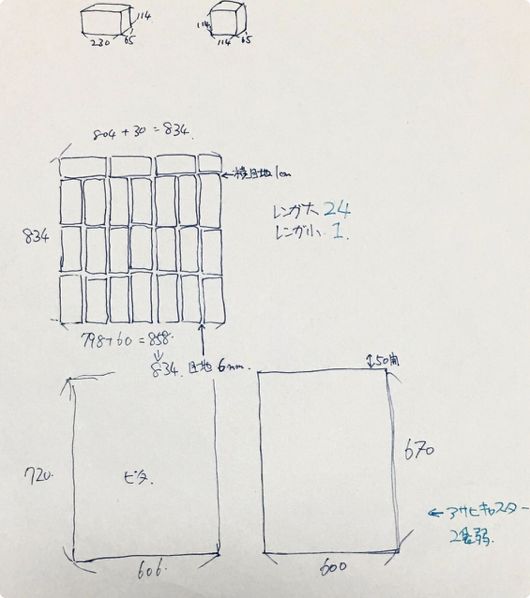 114
230
65
114
114
65
804 + 30 = 834.
←横目地1cm
834
レンガ大 24
レンガ小 1.
798+60 = 858.
⇓
834.
目地 6mm.
↕50角
720.
ピタ.
670
←アサヒキャスター
2袋弱.
606.
600